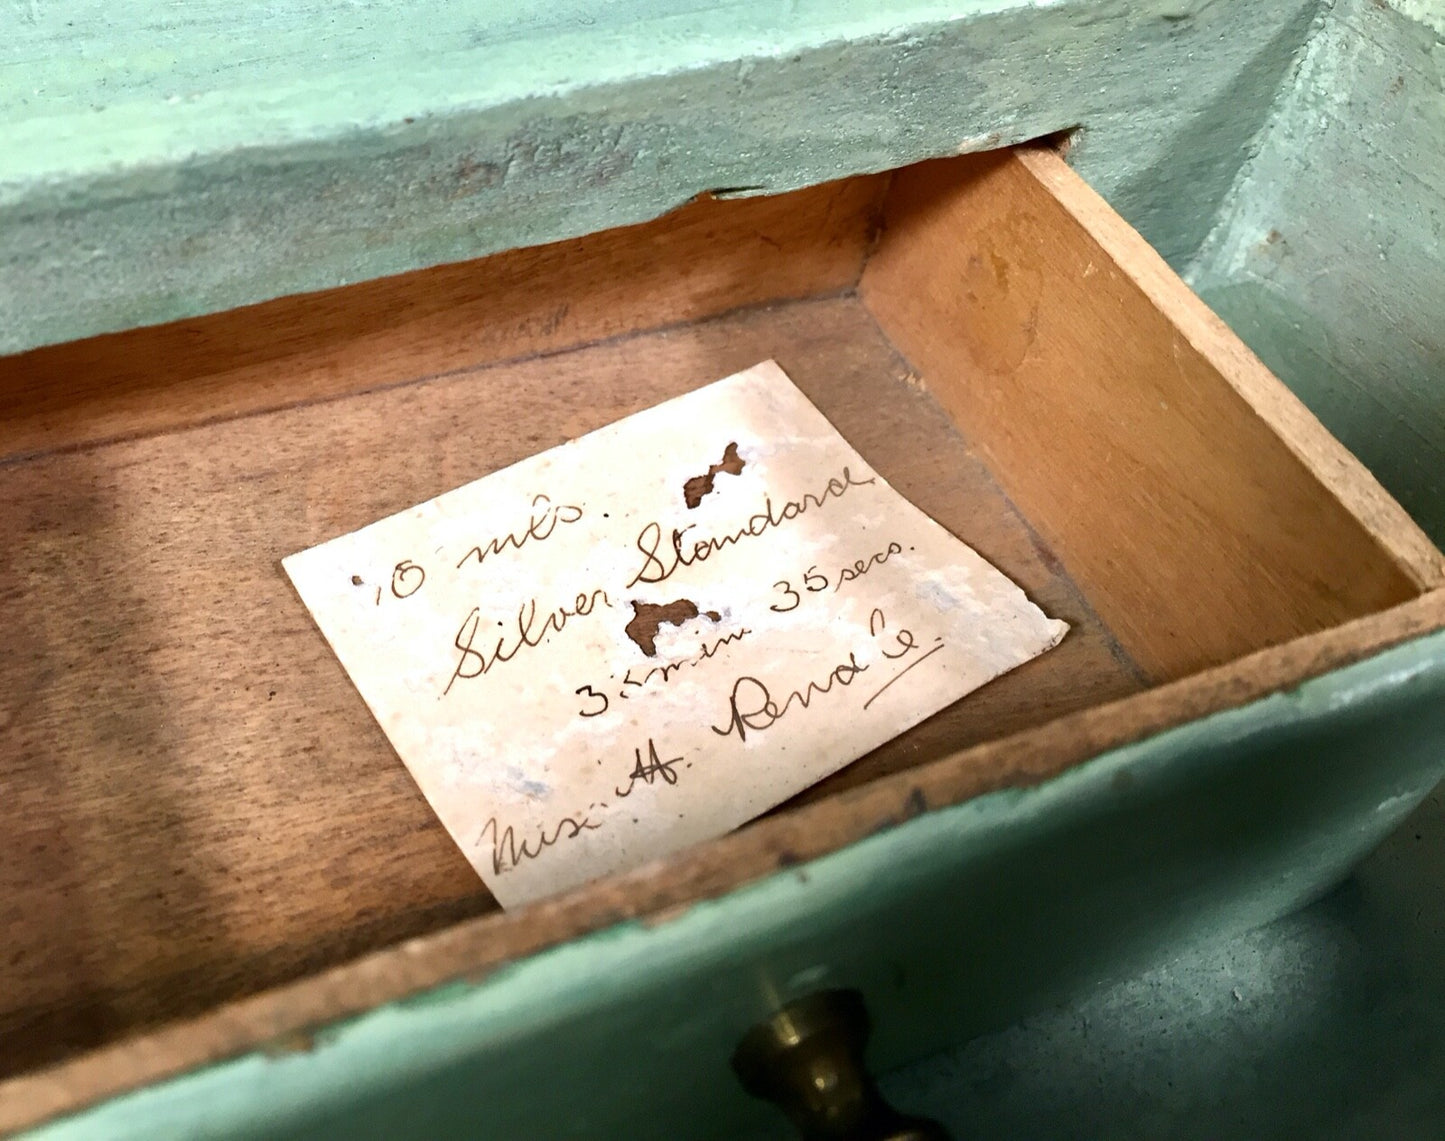 10 mts.
Silver Standard.
3 min 35 secs.
Miss. H. Rendle.